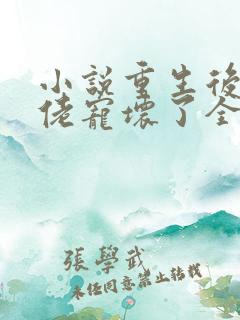 小說重生後
佬寵壞了全
張學武
未任同意禁止转载